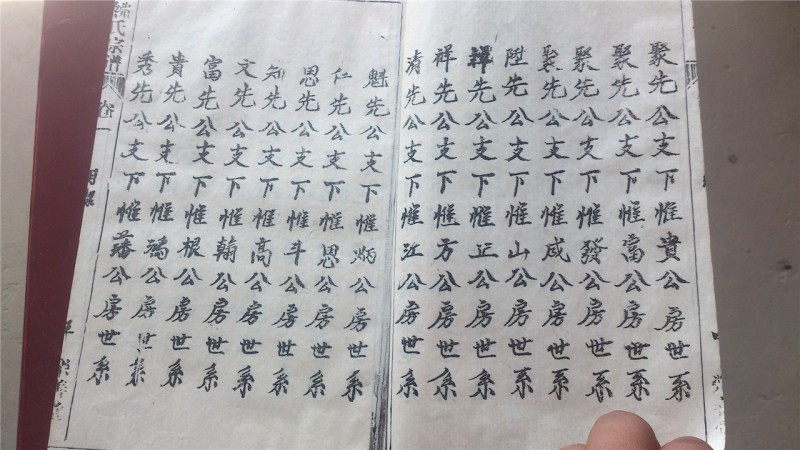 聚先公支下惟貴公房世系
聚先公支下惟富公房世系
聚先公支下惟發公房世系
聚先公支下惟咸公房世系
陞先公支下惟山公房世系
禪先公支下惟正公房世系
祥先公支下惟方公房世系
清先公支下惟江公房世系
魁先公支下惟炳公房世系
仁先公支下惟恩公房世系
恩先公支下惟斗公房世系
知先公支下惟高公房世系
文先公支下惟翰公房世系
富先公支下惟根公房世系
貴先公支下惟公房世系
秀先公支下惟藩公房世系
氏宗譜
卷一